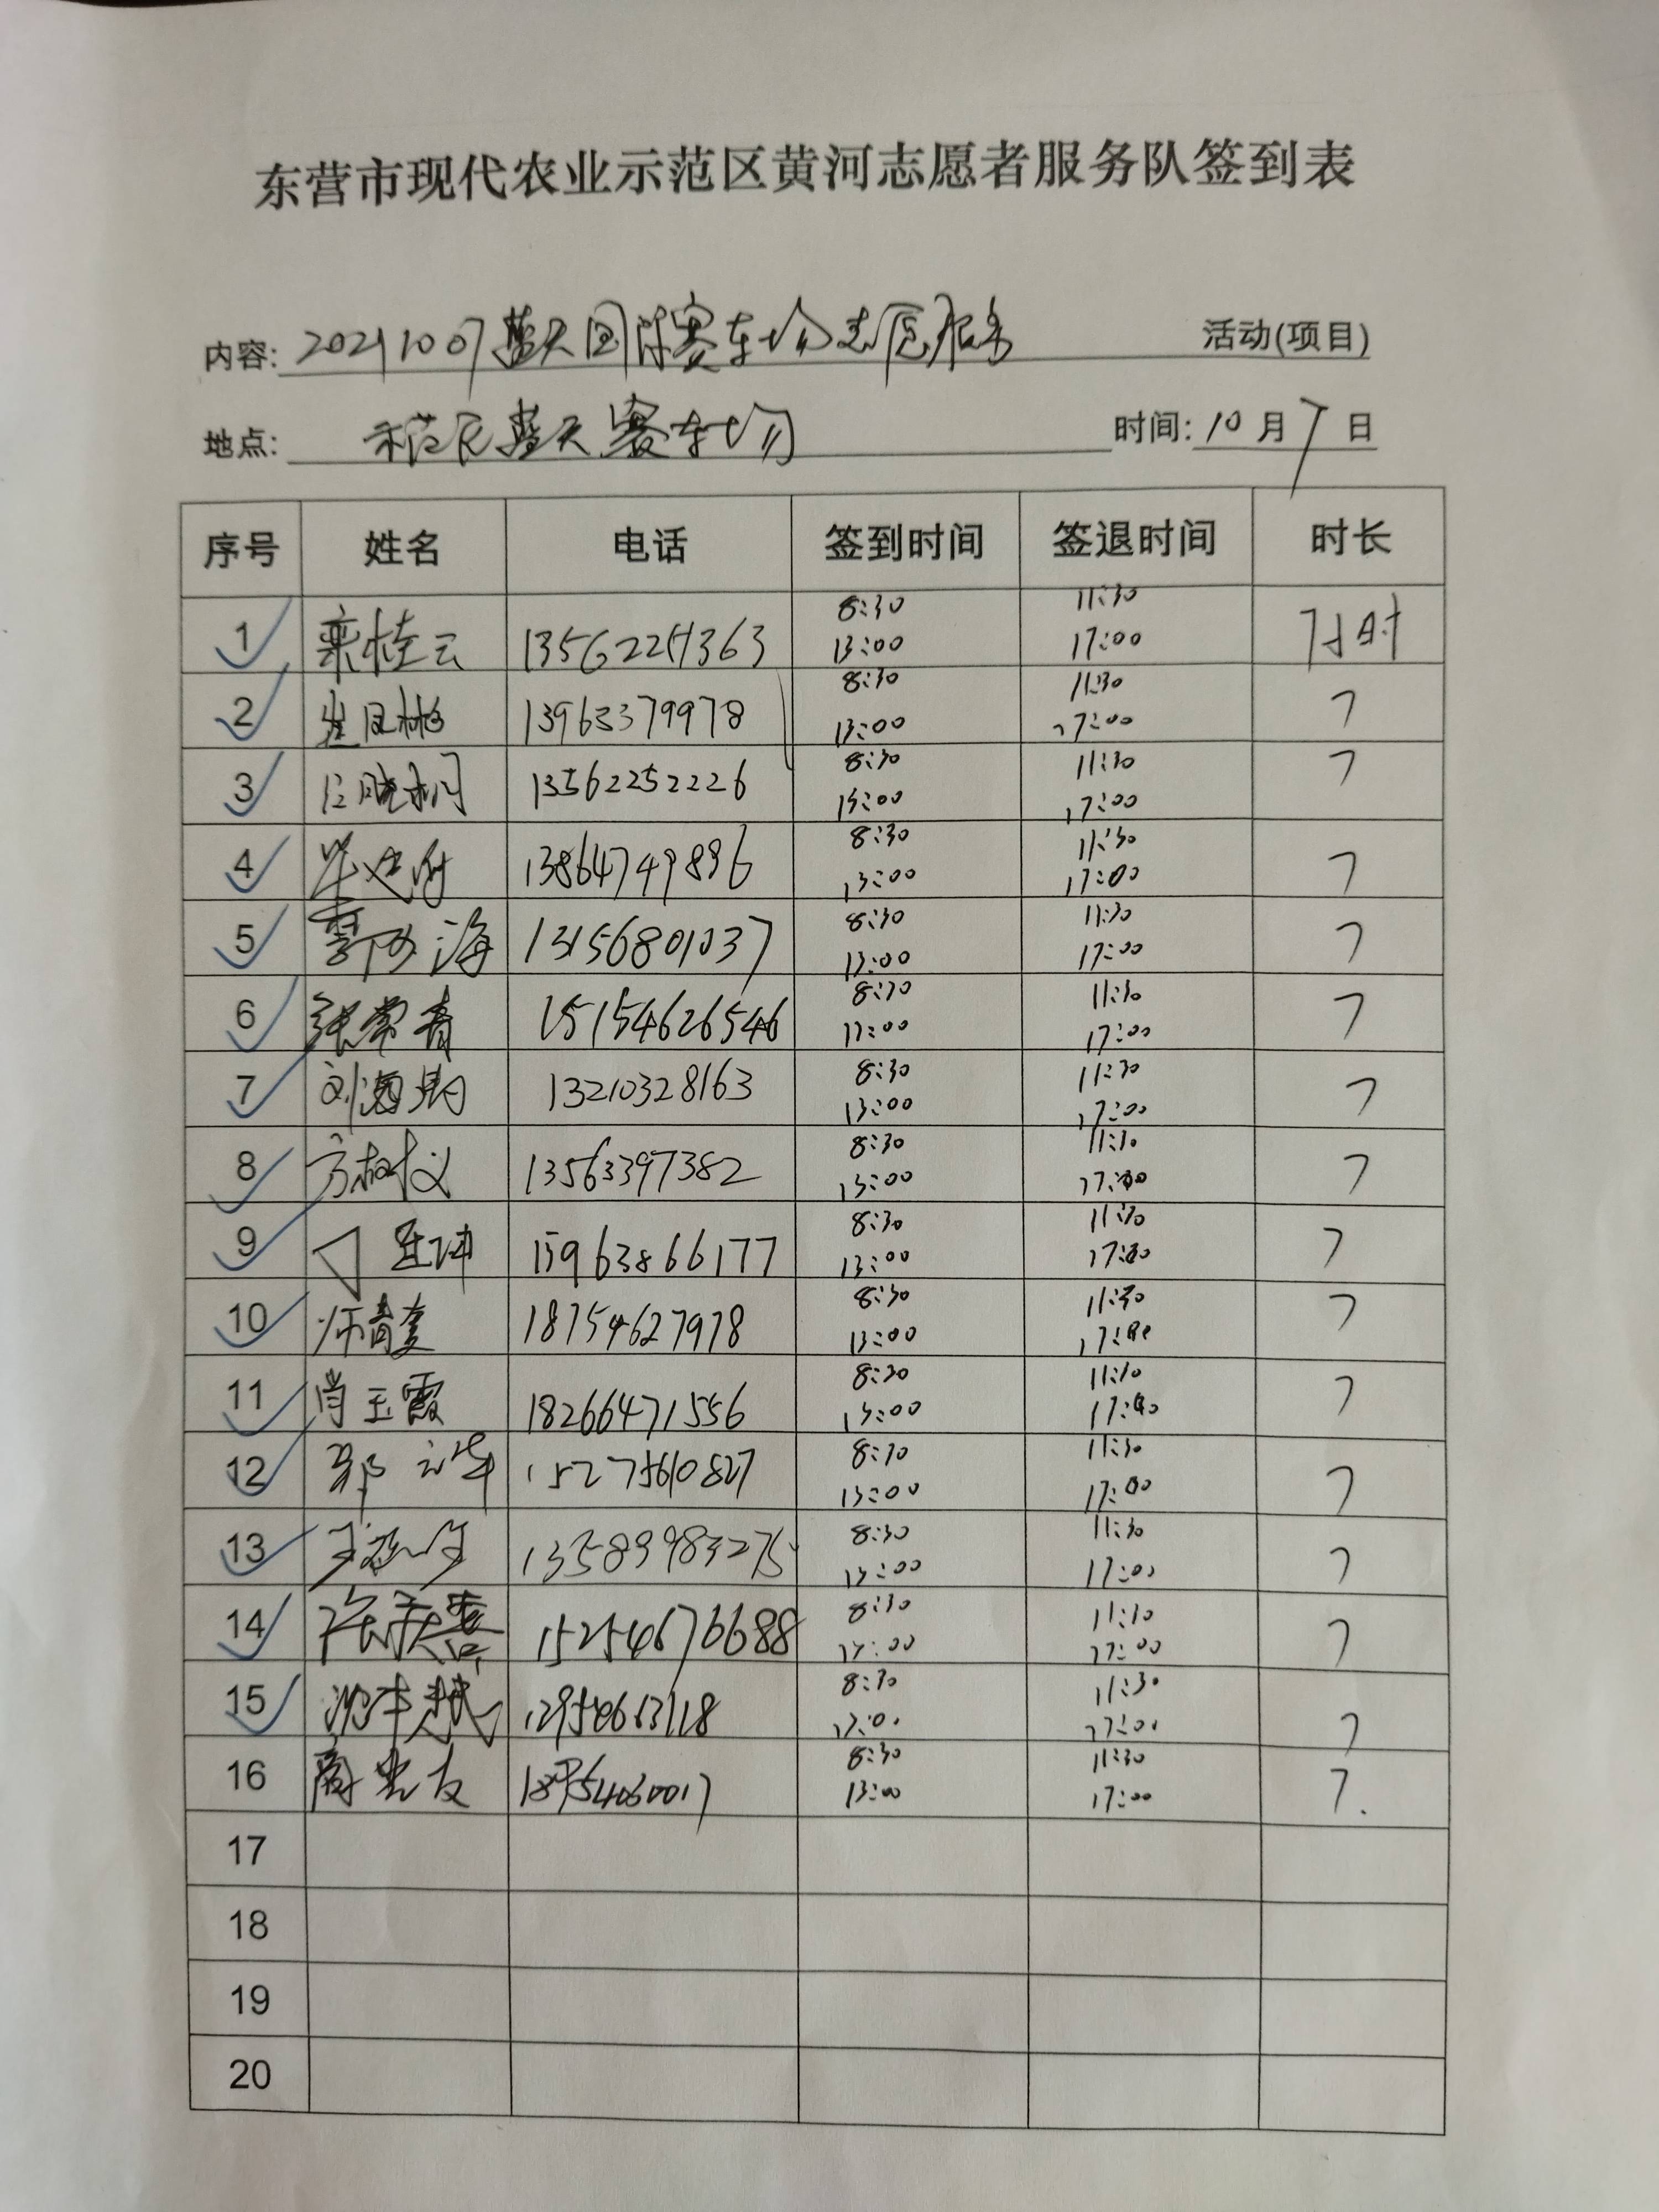 东营市现代农业示范区黄河志愿者服务队签到表
内容: 20211007蓝天国际赛车场志愿服务 活动(项目)
地点: 示范区蓝天赛车场 时间: 10月7日
序号 姓名 电话 签到时间 签退时间 时长
8:30 11:30
1 栾桂云 13562251363 13:00 17:00 7小时
8:30 11:30
2 13963379978 13:00 17:00 7
8:30 11:30
3 13562252226 13:00 17:00 7
8:30 11:30
4 13864749896 13:00 17:00 7
8:30 11:30
5 海 13156801037 13:00 17:00 7
8:30 11:30
6 张常青 15154626546 13:00 17:00 7
8:30 11:30
7 刘海娟 13210328163 13:00 17:00 7
8:30 11:30
8 方树义 13563397382 13:00 17:00 7
8:30 11:30
9 15963866177 13:00 17:00 7
8:30 11:30
10 师青奎 18754627978 13:00 17:00 7
8:30 11:30
11 肖玉霞 18266471556 13:00 17:00 7
8:30 11:30
12 15275610827 13:00 17:00 7
8:30 11:30
13 13589983275 13:00 17:00 7
8:30 11:30
14 15254676688 13:00 17:00 7
8:30 11:30
15 13:00 17:00 7
8:30 11:30
16 13:00 17:00 7.
17
18
19
20